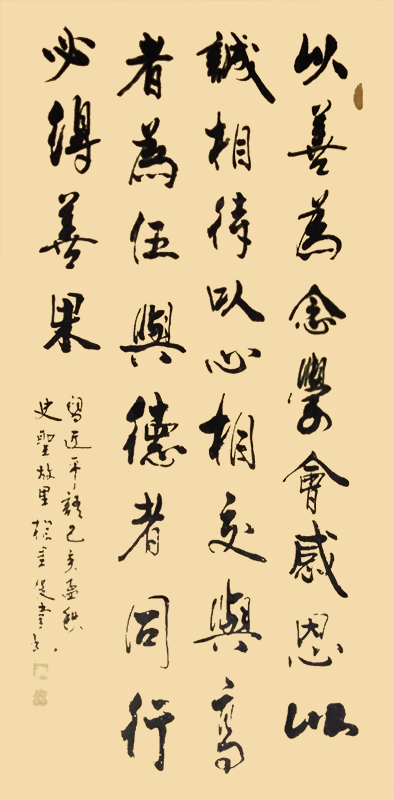 以善為念學會感恩以
誠相待以心相交與高
者為伍與德者同行
必得善果
習近平語己亥孟秋
史聖故里